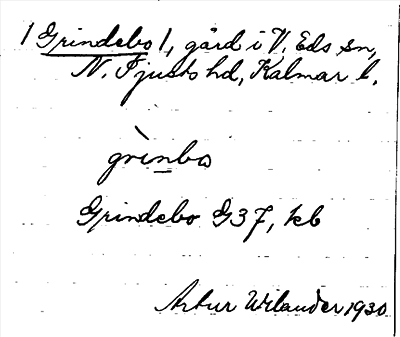 1 Grindebo 1, gård i V. Eds sn,
N. Tjusts hd, Kalmar l.
grìnbo
Grindebo G37, kb
Artur Wilander 1930